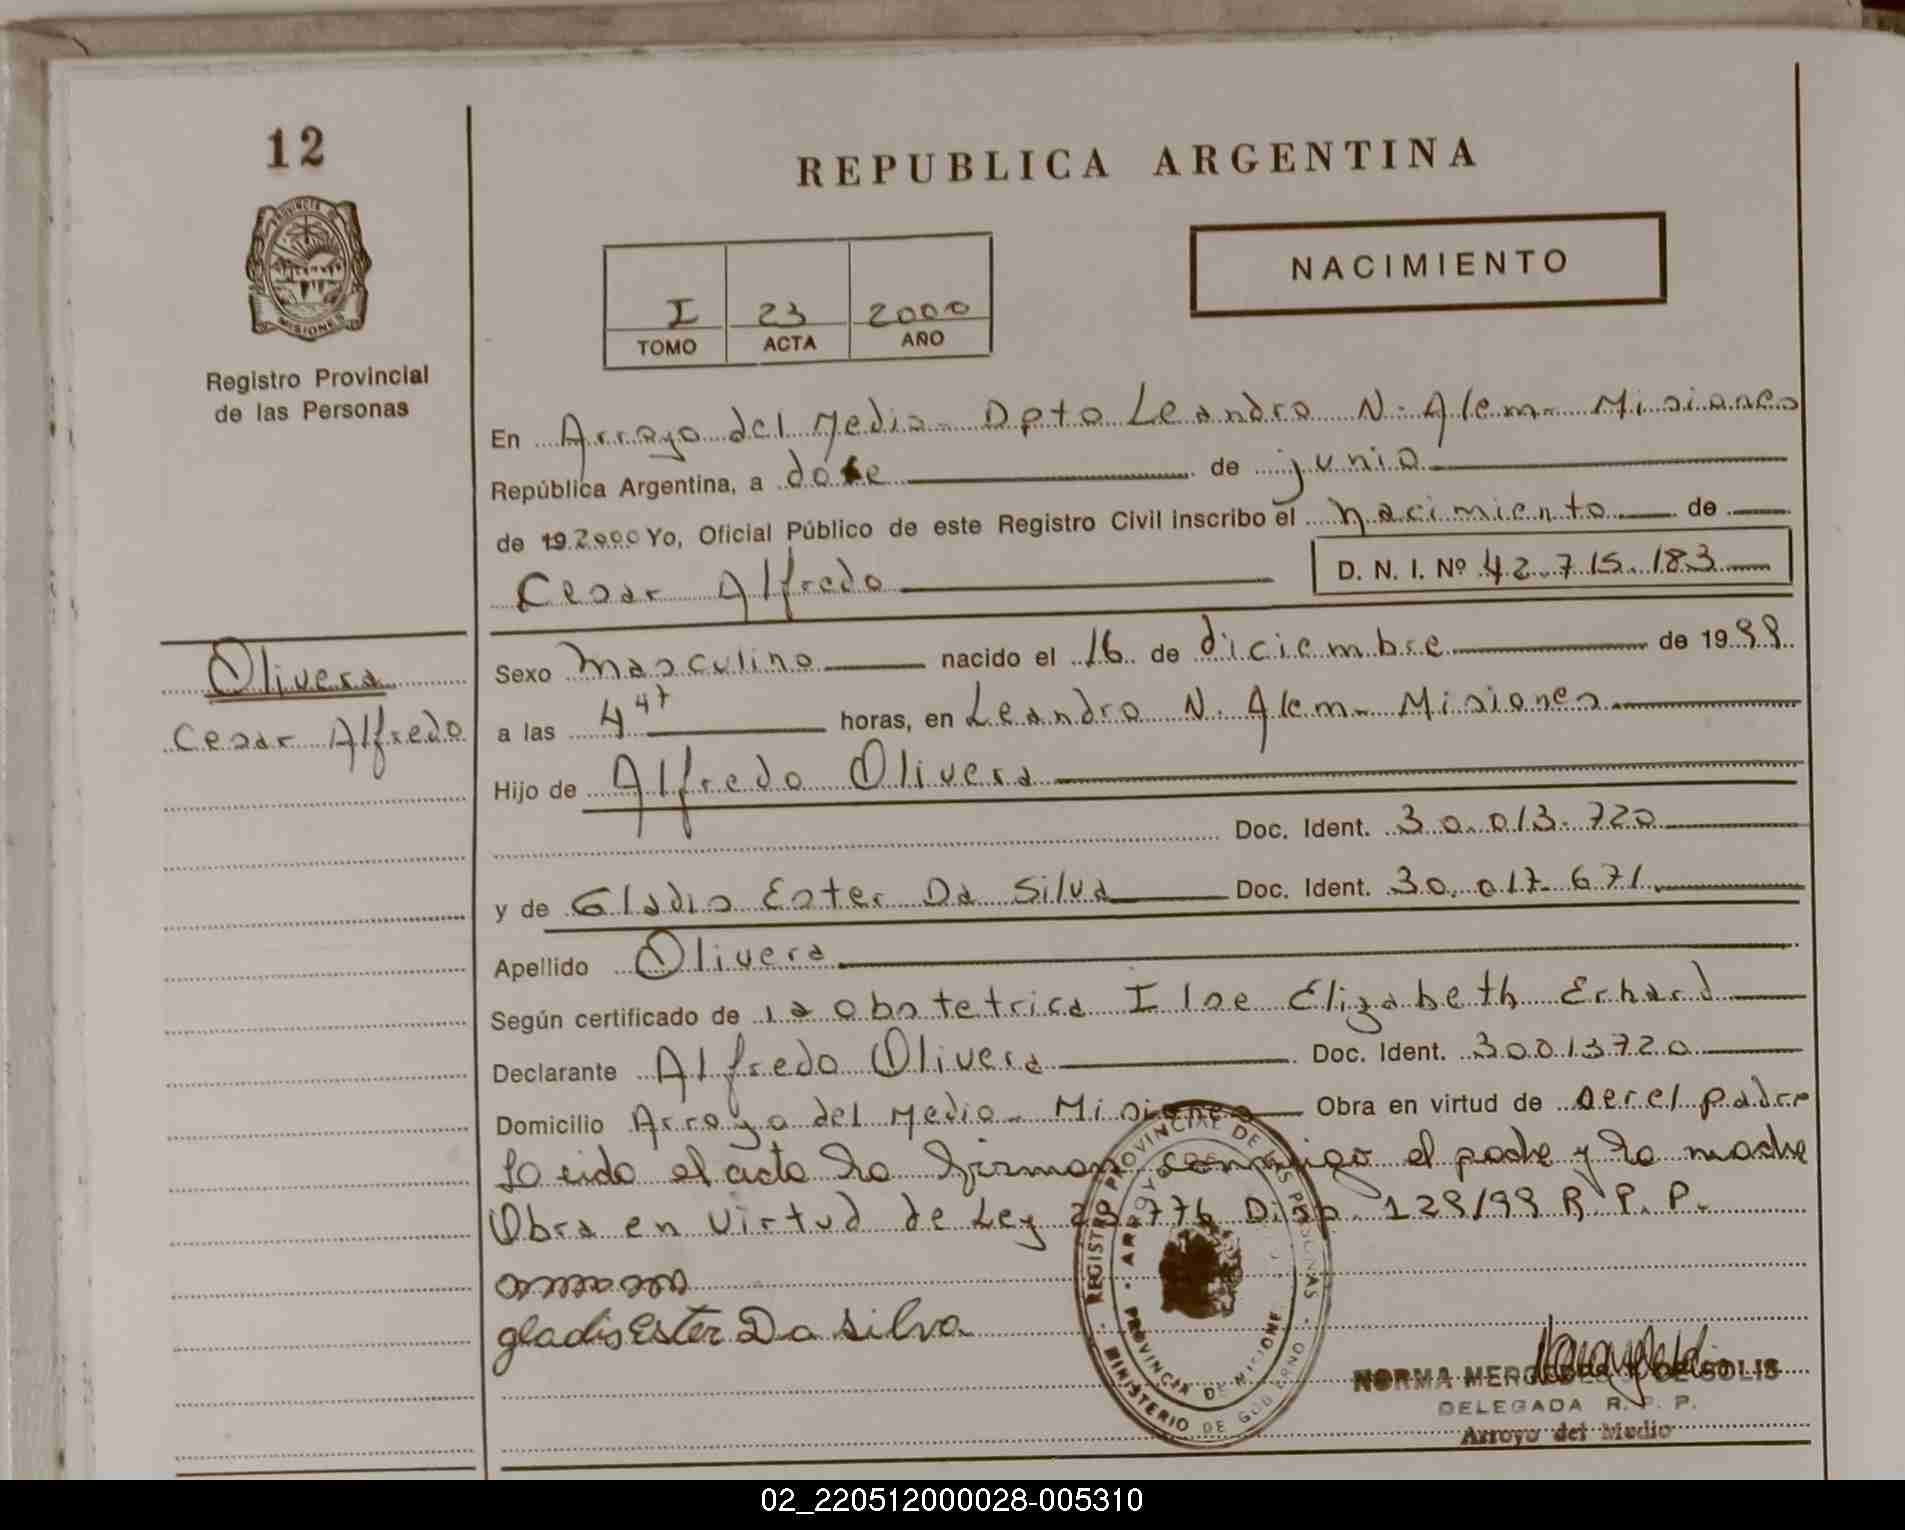 12
PROVINCIA DE
MISIONES
Registro Provincial
de las Personas
REPUBLICA ARGENTINA
NACIMIENTO
I 23 2000
TOMO ACTA AÑO
En Arroyo del Medio - Dpto Leandro N. Alem - Misiones
República Argentina, a doce de junio
de 19 2000 Yo, Oficial Público de este Registro Civil inscribo el nacimiento de
Cesar Alfredo D. N. I. Nº 42.715.183
Olivera
Cesar Alfredo
Sexo masculino nacido el 16 de diciembre de 1999
a las 4 47 horas, en Leandro N. Alem - Misiones
Hijo de Alfredo Olivera
Doc. Ident. 30.013.720
y de Gladis Ester Da Silva Doc. Ident. 30.017.671
Apellido Olivera
Según certificado de la obstetrica Ilse Elizabeth Erhard
Declarante Alfredo Olivera Doc. Ident. 30013720
Domicilio Arroyo del Medio - Misiones Obra en virtud de ser el padre
Leido el acta la firman conmigo el padre y la madre
Obra en virtud de Ley 23.776 Disp. 129/99 R P. P.
gladis Ester Da silva
REGISTRO PROVINCIAL DE LAS PERSONAS
PROVINCIA DE MISIONES
MINISTERIO DE GOBIERNO
NORMA MERCEDES DE SOLIS
DELEGADA R. P. P.
Arroyo del Medio
02_220512000028-005310